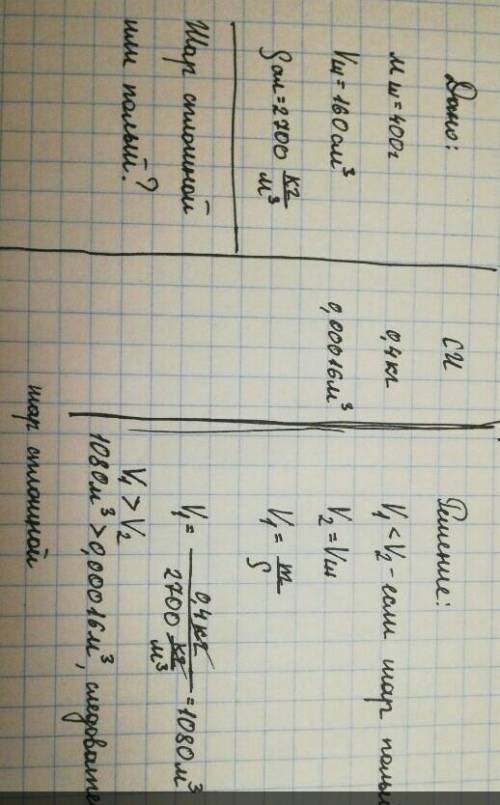 Дано:
mш = 400г
Vш = 160см³
ρал = 2700 кг/м³
Шар сплошной
или полый?
СИ
0,4кг
0,00016м³
Решение:
V₁ < V₂ - если шар
V₂ = Vш
V₁ = m/ρ
V₁ = 0,4кг / 2700 кг/м³ = 1080м³
V₁ > V₂
1080м³ > 0,00016м³,
шар сплошной